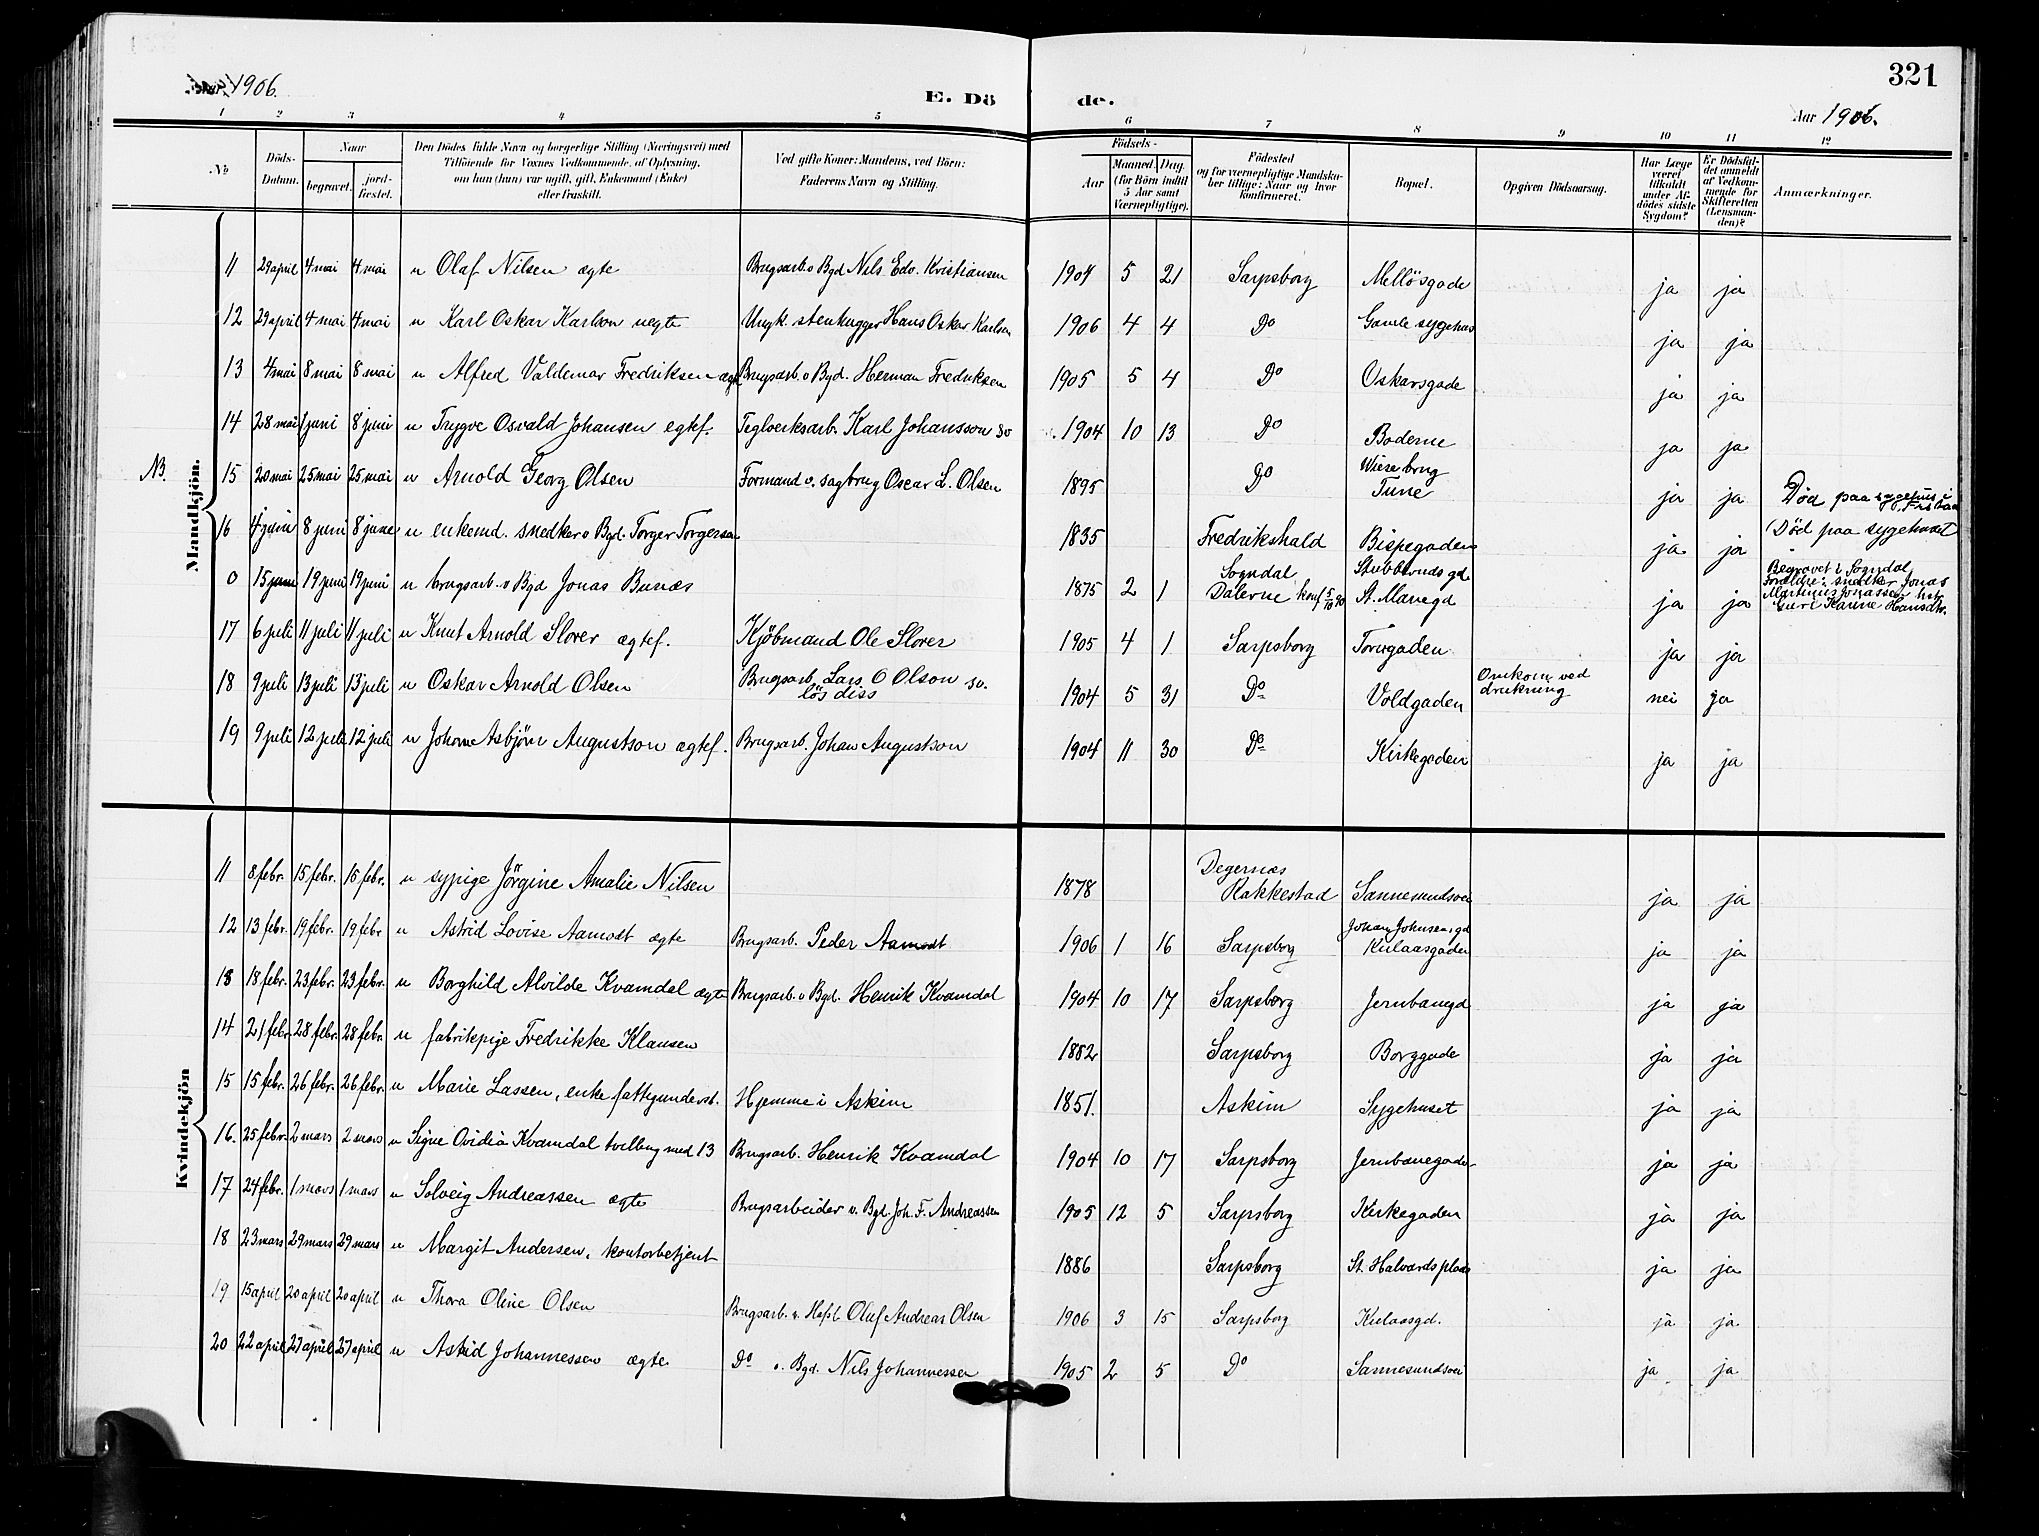 321
1906.
E. Dö de.
Aar 1906.
1 2 3 4 5 6 7 8 9 10 11 12
No
Döds-Datum.
Naar
begravet.
jord-fæstet.
Den Dödes fulde Navn og borgerlige Stilling (Næringsvei) med Tilföiende for Voxnes Vedkommende, af Oplysning, om han (hun) var ugift, gift, Enkemand (Enke) eller fraskilt.
Ved gifte Koner: Mandens, ved Börn: Faderens Navn og Stilling.
Födsels-
Aar
Maaned.
Dag.
(for Börn indtil 5 Aar samt Værnepligtige).
Födested og for værnepligtige Mandskaber tillige: Naar og hvor konfirmeret.
Bopæl.
Opgiven Dödsaarsag.
Har Læge været tilkaldt under Afdödes sidste Sygdom?
Er Dödsfaldet anmeldt af Vedkommende for Skifteretten (Lensmanden)?
Anmærkninger.
Mandkjön.
11 29 april 4 mai 4 mai u Olaf Nilsen ægte Brugsarb. v Bgd Nils Edv. Kristiansen 1904 5 21 Sarpsborg Mellösgade ja ja
12 29 april 4 mai 4 mai u Karl Oskar Karlson uegte Ungk. stenhugger Hans Oskar Karlsen 1906 4 4 Do Gamle sygehus ja ja
13 4 mai 8 mai 8 mai u Alfred Valdemar Fredriksen ægt Brugsarb. v Bgd. Herman Fredriksen 1905 5 4 Do Oskarsgade ja ja
14 28 mai 1 juni 8 juni u Trygve Osvald Johansen egtef. Teglverksarb. Karl Johansson sv 1904 10 13 Do Boderne ja ja
NB. 15 20 mai 25 mai 25 mai u Arnold Georg Olsen Formand v. sagbrug Oscar L. Olsen 1895 Do Wiese brug Tune ja ja Död paa sygehus i Fr.stad
16 4 juni 8 juni 8 june u enkemd. snedker v Bgd. Torger Torgersen 1835 Fredrikshald Bispegaden ja ja (Död paa sygehuset
0 15 juni 19 juni 19 juni u brugsarb. v Bgd Jonas Bunæs 1875 2 1 Sogndal Dalerne konf 5/10 90 Stubberuds gd. St. Mariegd ja ja Begravet i Sogndal Forældre: snedker Jonas Martinius Jonassen hstr Guri Karine Hansdtr.
17 6 juli 11 juli 11 juli u Knut Arnold Slorer ægtef. Kjöbmand Ole Slorer 1905 4 1 Sarpsborg Torvgaden ja ja
18 9 juli 13 juli 13 juli u Oskar Arnold Olsen Brugsarb. Lars O Olson sv. lös diss 1904 5 31 Do Voldgaden Omkom ved drukning nei ja
19 9 juli 12 juli 12 juli u Johan Asbjörn Augustson ægtef. Brugsarb. Johan Augustson 1904 11 30 Do Kirkegaden ja ja
Kvindekjön
11 8 febr. 15 febr. 15 febr. u sypige Jörgine Amalie Nilsen 1878 Degernæs Rakkestad Sannesundsvei ja ja
12 13 febr. 19 febr. 19 febr u Astrid Lovise Aamodt ægte Brugsarb. Peder Aamodt 1906 1 16 Sarpsborg Johan Johnsens gd Kulaasgaden ja ja
13 18 febr. 23 febr. 23 febr. u Borghild Alvilde Kvamdal ægte Brugsarb. v Bgd. Henrik Kvamdal 1904 10 17 Sarpsborg Jernbanegd ja ja
14 21 febr 28 febr. 28 febr. u fabrikpige Fredrikke Klausen 1882 Sarpsborg Borggade ja ja
15 15 febr. 26 febr. 26 febr. u Marie Lassen, enke fattigunderst. Hjemme i Askim 1851. Askim Sygehuset ja ja
16. 25 febr. 2 mars 2 mars u Signe Ovidia Kvamdal tvilling med 13 Brugsarb. Henrik Kvamdal 1904 10 17 Sarpsborg Jernbanegade ja ja
17 24 febr. 1 mars 1 mars u Solveig Andreassen ægte Brugsarbeider v. Bgd. Joh. F. Andreassen 1905 12 5 Sarpsborg Kirkegaden ja ja
18 23 mars 29 mars 29 mars u Margit Andersen, kontorbetjent 1886 Sarpsborg St. Halvards plads ja ja
19 15 april 20 april 20 april u Thora Oline Olsen Brugsarb. v. Hafsl Oluf Andreas Olsen 1906 3 15 Sarpsborg Kulaasgd. ja ja
20 22 april 27 april 27 april u Astrid Johannessen ægte Do v. Bgd. Nils Johannessen 1905 2 5 Do Sannesundsvei ja ja